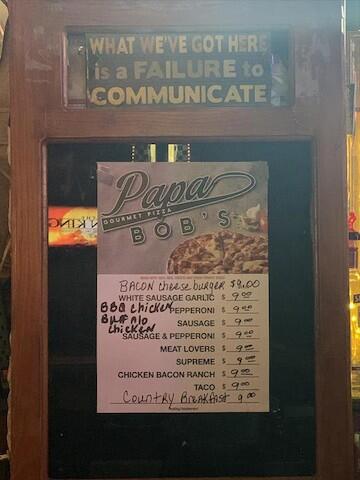 WHAT WE'VE GOT HERE
is a FAILURE to
COMMUNICATE
Papa
GOURMET PIZZA
BOB'S
BACON cheeseburger $9.00
WHITE SAUSAGE GARLIC $ 9.00
BBQ chicken
PEPPERONI $ 9.00
BUFFAlO chicken
SAUSAGE $ 9.00
SAUSAGE & PEPPERONI $ 9.00
MEAT LOVERS $ 9.00
SUPREME $ 9.00
CHICKEN BACON RANCH $ 9.00
TACO $ 9.00
Country Breakfast 9.00